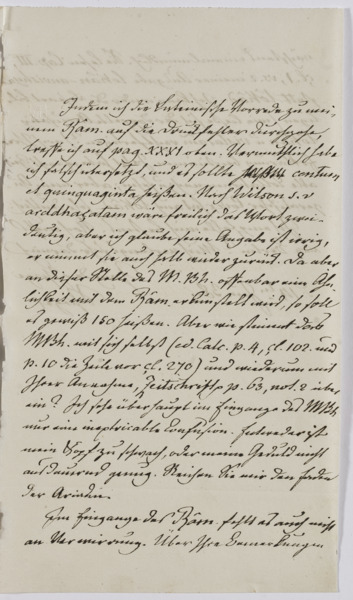 Indem ich die Lateinische Vorrede zu mei-
nem Râm. auf die Druckfehler durchgehe,
treffe ich auf pag. XXXI oben. Vermuthlich habe
ich falsch übersetzt, und es sollte centum
et quinquaginta heißen. Nach Wilson s. v.
arddhaçatam wäre freilich das Wort zwei-
deutig, aber ich glaube seine Angabe ist irrig,
er nimmt sie auch halb wieder zurück. Da aber
an dieser Stelle des M. Bh. offenbar eine Ähn-
lichkeit mit dem Râm. erkünstelt wird, so soll
es gewiß 150 heißen. Aber wie stimmt das
MBh. mit sich selbst (ed. Calc. p. 4, çl. 102. und
p. 10 die Zeile vor çl. 270) und wiederum mit
Ihrer Annahme, Zeitschrift p. 63, not. 2 über-
ein? Ich sehe überhaupt im Eingange des MBh.
nur eine inextricable Confusion. Entweder ist
mein Kopf zu schwach, oder meine Geduld nicht
ausdauernd genug. Reichen Sie mir den Faden
der Ariadne.
Im Eingange des Râm. fehlt es auch nicht
an Verwirrung. Über Ihre Bemerkungen